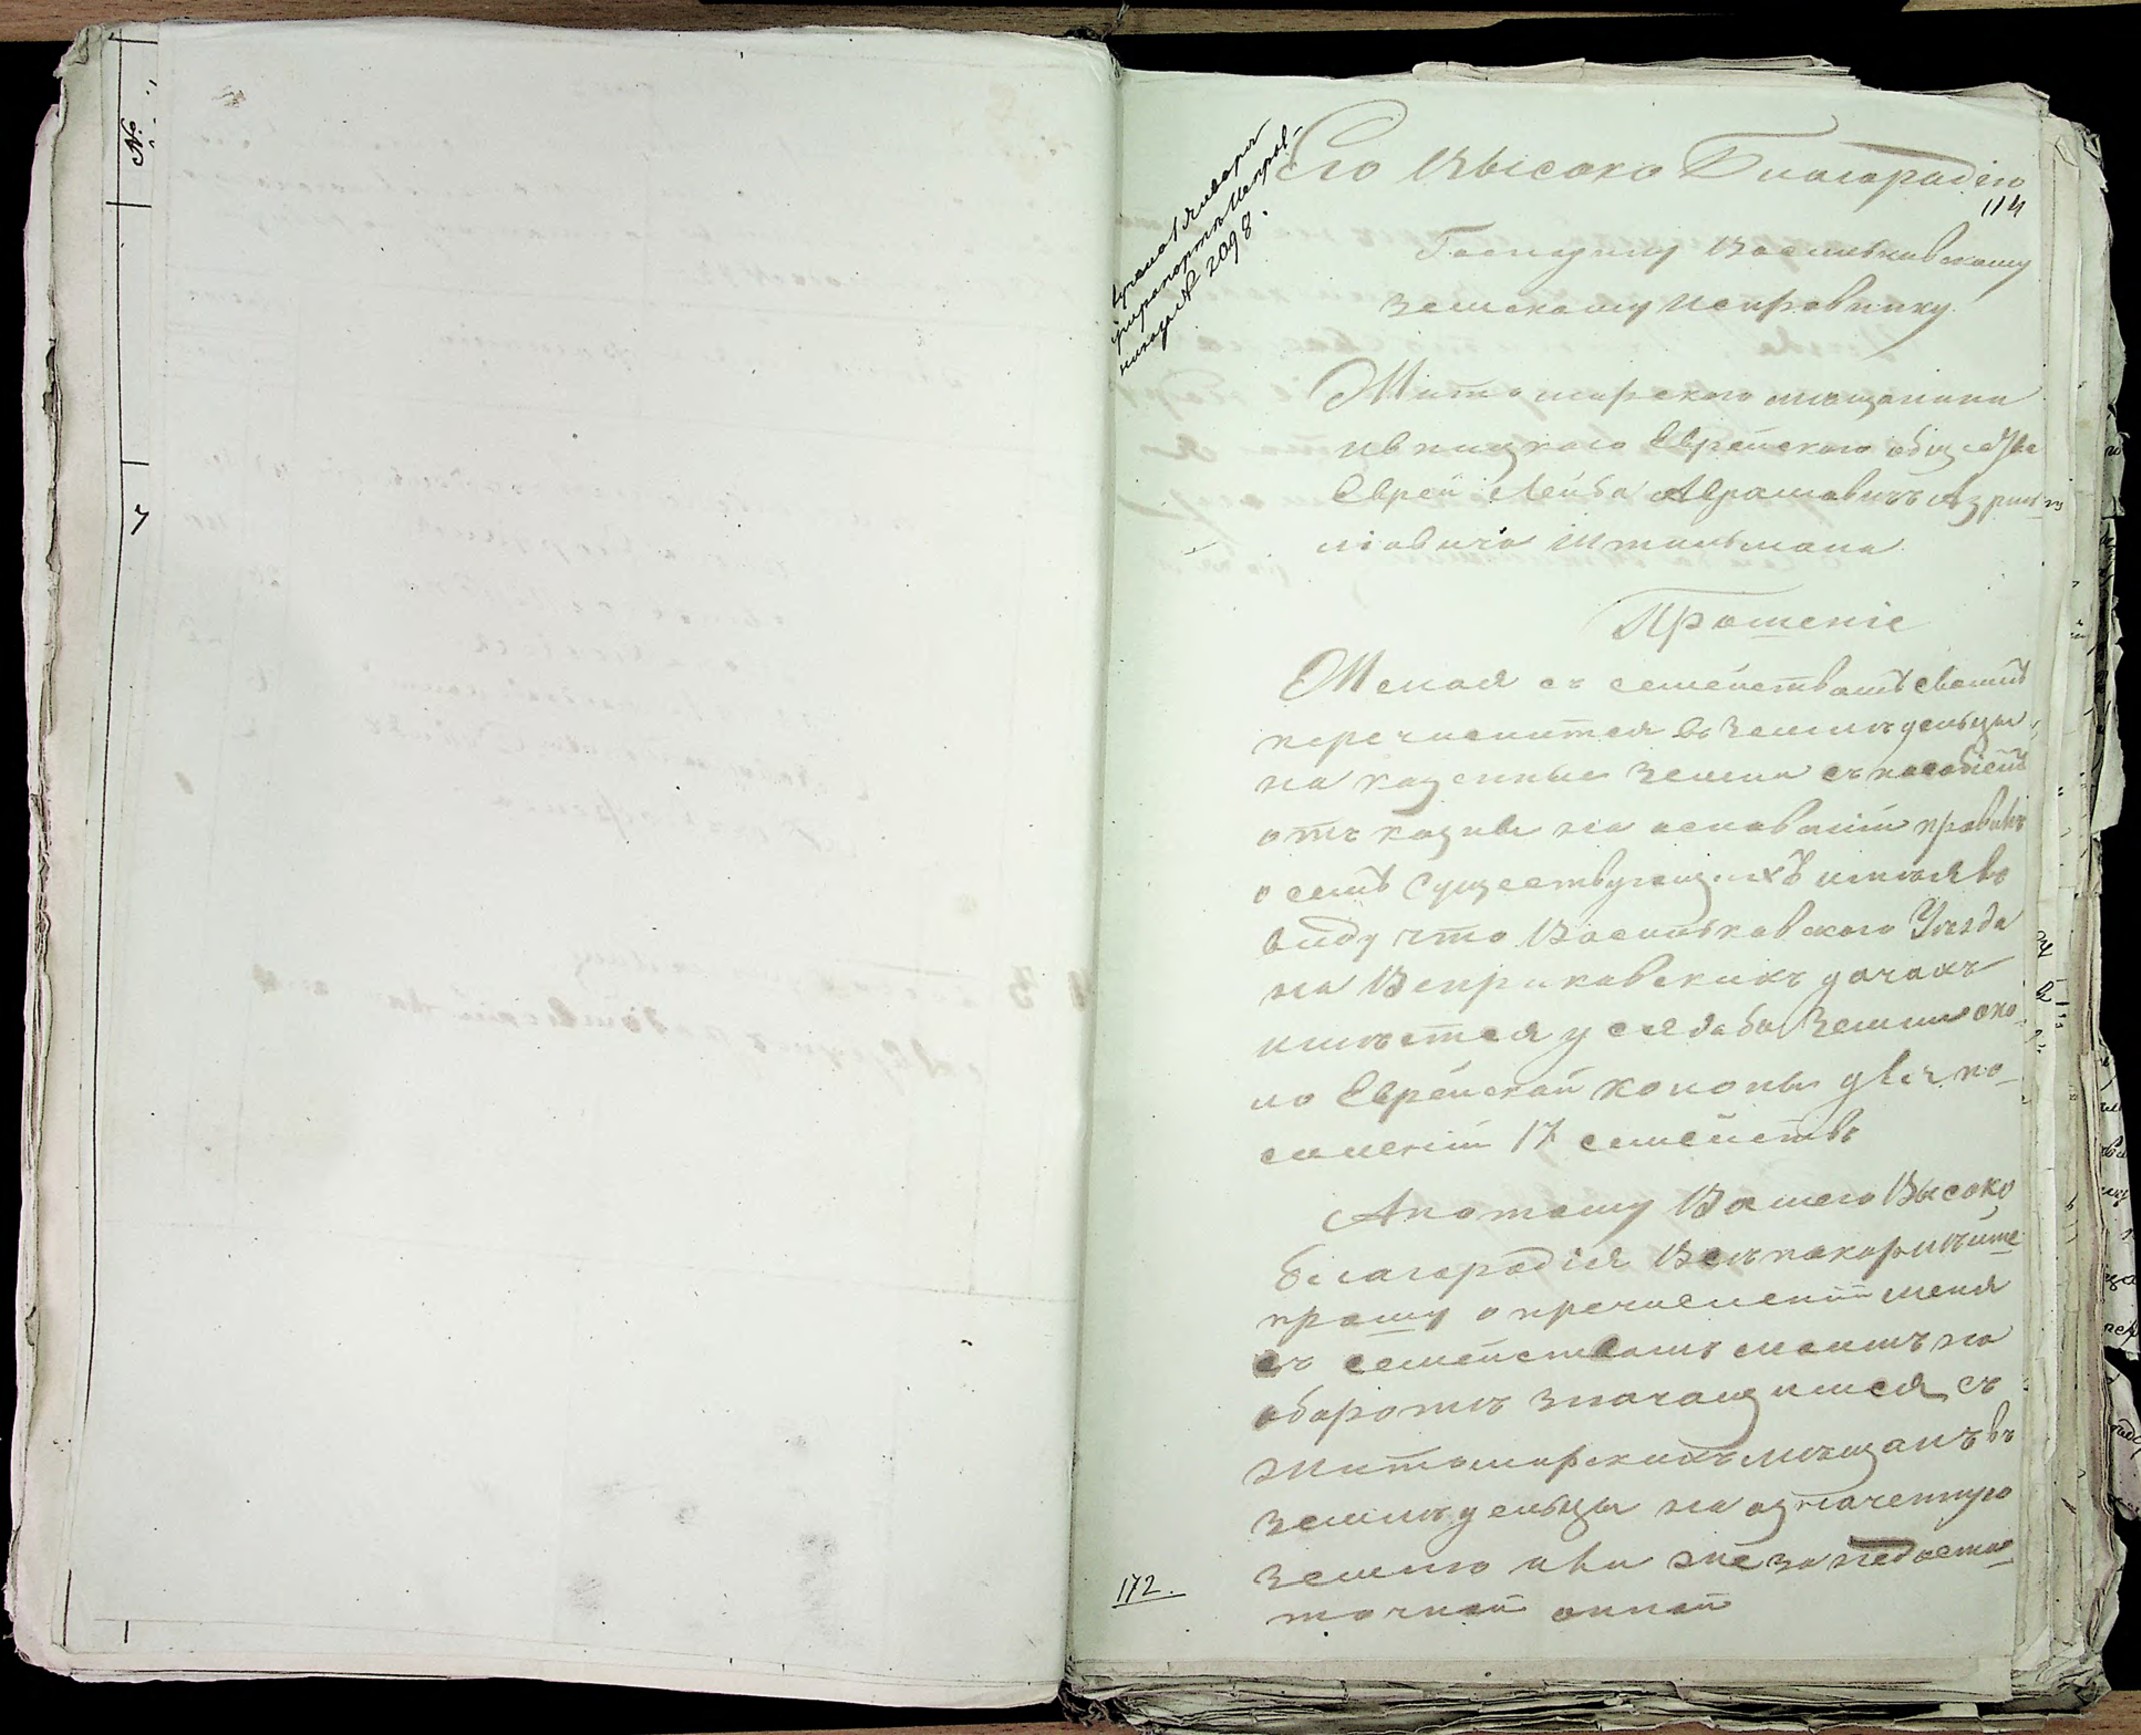 №
7
114
рапортъ Исправ-
№ 2098.
Его Высоко Благородію
Господину Васильковскому
Земскому Исправнику
Житомирского мещанина
Ивницкаго Еврейского общества
Еврей Лейба Аврамовичъ
Штильмана
Прошеніе
Желая съ семействомъ своимъ
перечислится въ земледельцы
на казенные земли съ пособіемъ
отъ казны на основаніи правилъ
о семъ существующихъ имея въ
виду что Васильковского Уезда
на Веприковскихъ дачахъ
имеется усадьба земли око-
ло Еврейской колоны для по-
селеніи 17 семействъ
А потому Вашего Высоко
благородія Всепокорнейше
прошу о пречислении меня
съ семействомъ моимъ на
обороте значащимся съ
житомирскихъ мещанъ въ
земледельцы на означенную
землю или же за недоста-
точной онной
172.